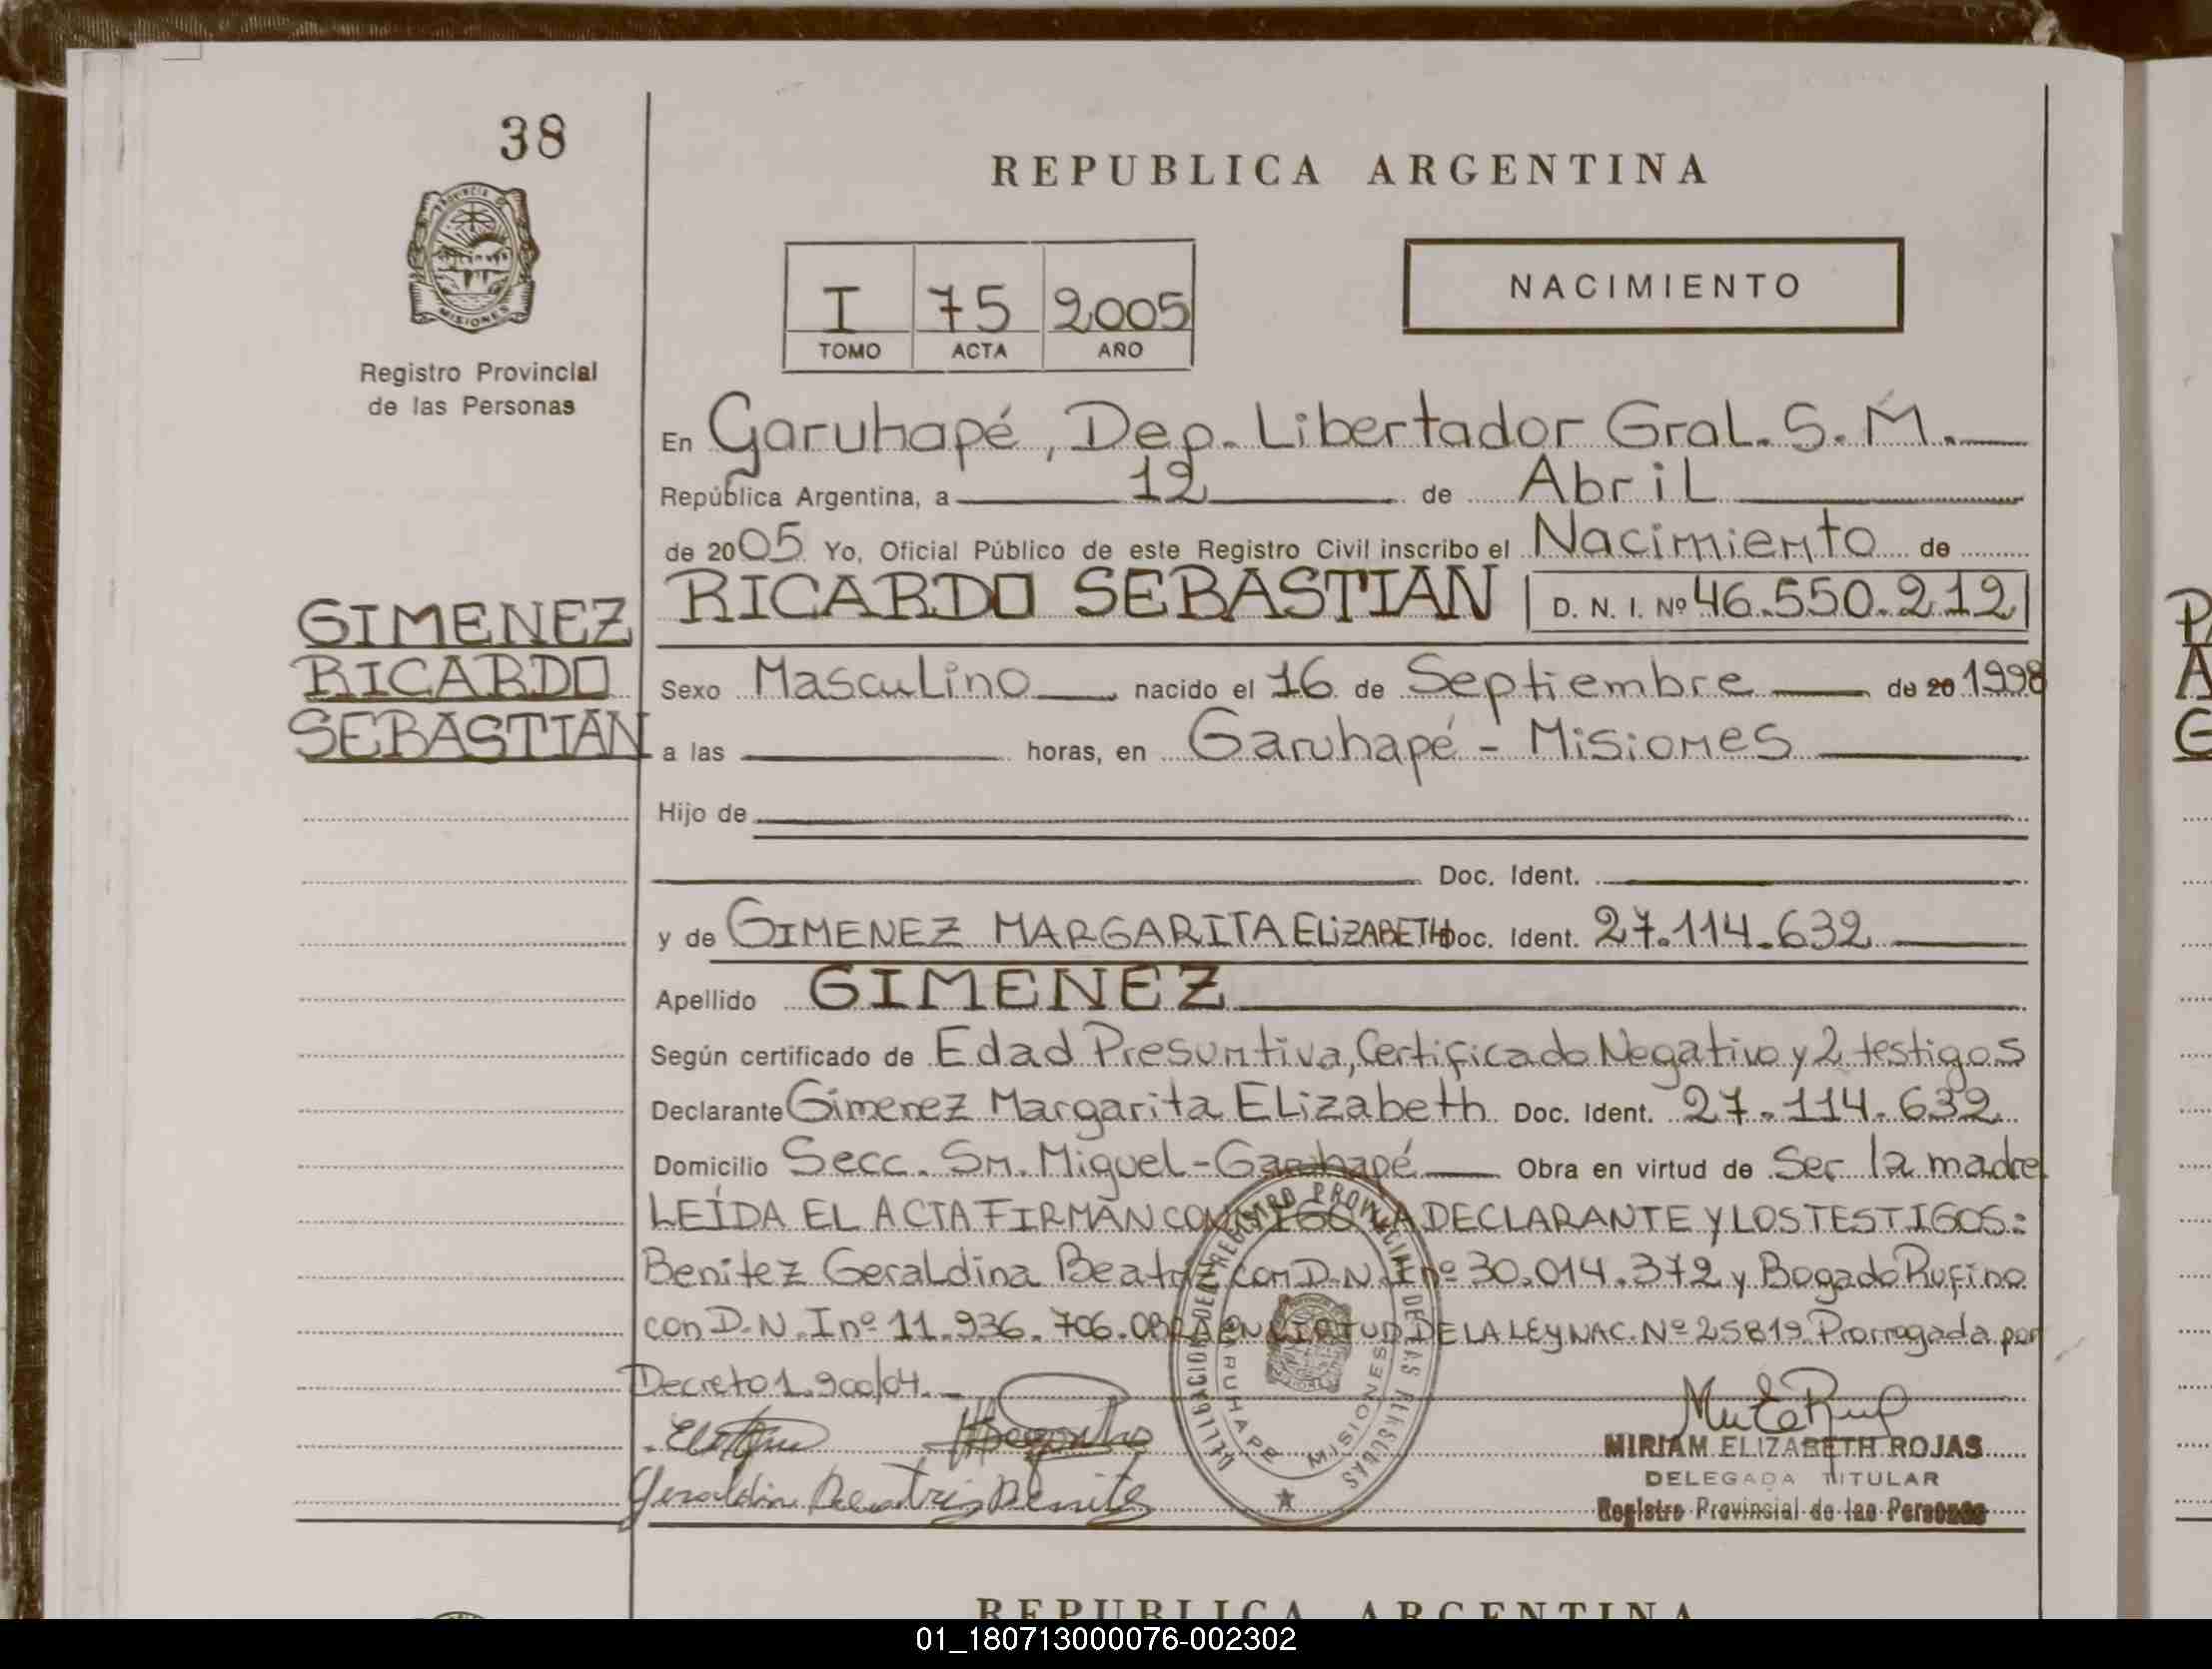 38
REPUBLICA ARGENTINA
PROVINCIA DE
MISIONES
Registro Provincial
de las Personas
I 75 2005
TOMO ACTA AÑO
NACIMIENTO
En Garuhapé, Dep. Libertador Gral. S. M.
República Argentina, a 12 de Abril
de 2005 Yo, Oficial Público de este Registro Civil inscribo el Nacimiento de
RICARDO SEBASTIAN D. N. I. Nº 46.550.212
GIMENEZ
RICARDO
SEBASTIAN
Sexo Masculino nacido el 16 de Septiembre de 20 1998
a las horas, en Garuhapé - Misiones
Hijo de
Doc. Ident.
y de GIMENEZ MARGARITA ELIZABETH Doc. Ident. 27.114.632
Apellido GIMENEZ
Según certificado de Edad Presuntiva, Certificado Negativo y 2 testigos
Declarante Gimenez Margarita Elizabeth Doc. Ident. 27.114.632
Domicilio Secc. Sn. Miguel - Garuhapé Obra en virtud de Ser la madre
LEÍDA EL ACTA FIRMAN CONMIGO LA DECLARANTE Y LOS TESTIGOS:
Benitez Geraldina Beatriz con D.N.I nº 30.014.372 y Bogado Rufino
con D.N.I nº 11.936.706. OBRA EN VIRTUD DE LA LEY NAC. Nº 25819 Prorrogada por
Decreto 1.900/04.
DELEGACION DEL REGISTRO PROVINCIAL DE LAS PERSONAS
GARUHAPE MISIONES
MIRIAM ELIZABETH ROJAS
DELEGADA TITULAR
Registro Provincial de las Personas
REPUBLICA ARGENTINA
01_180713000076-002302